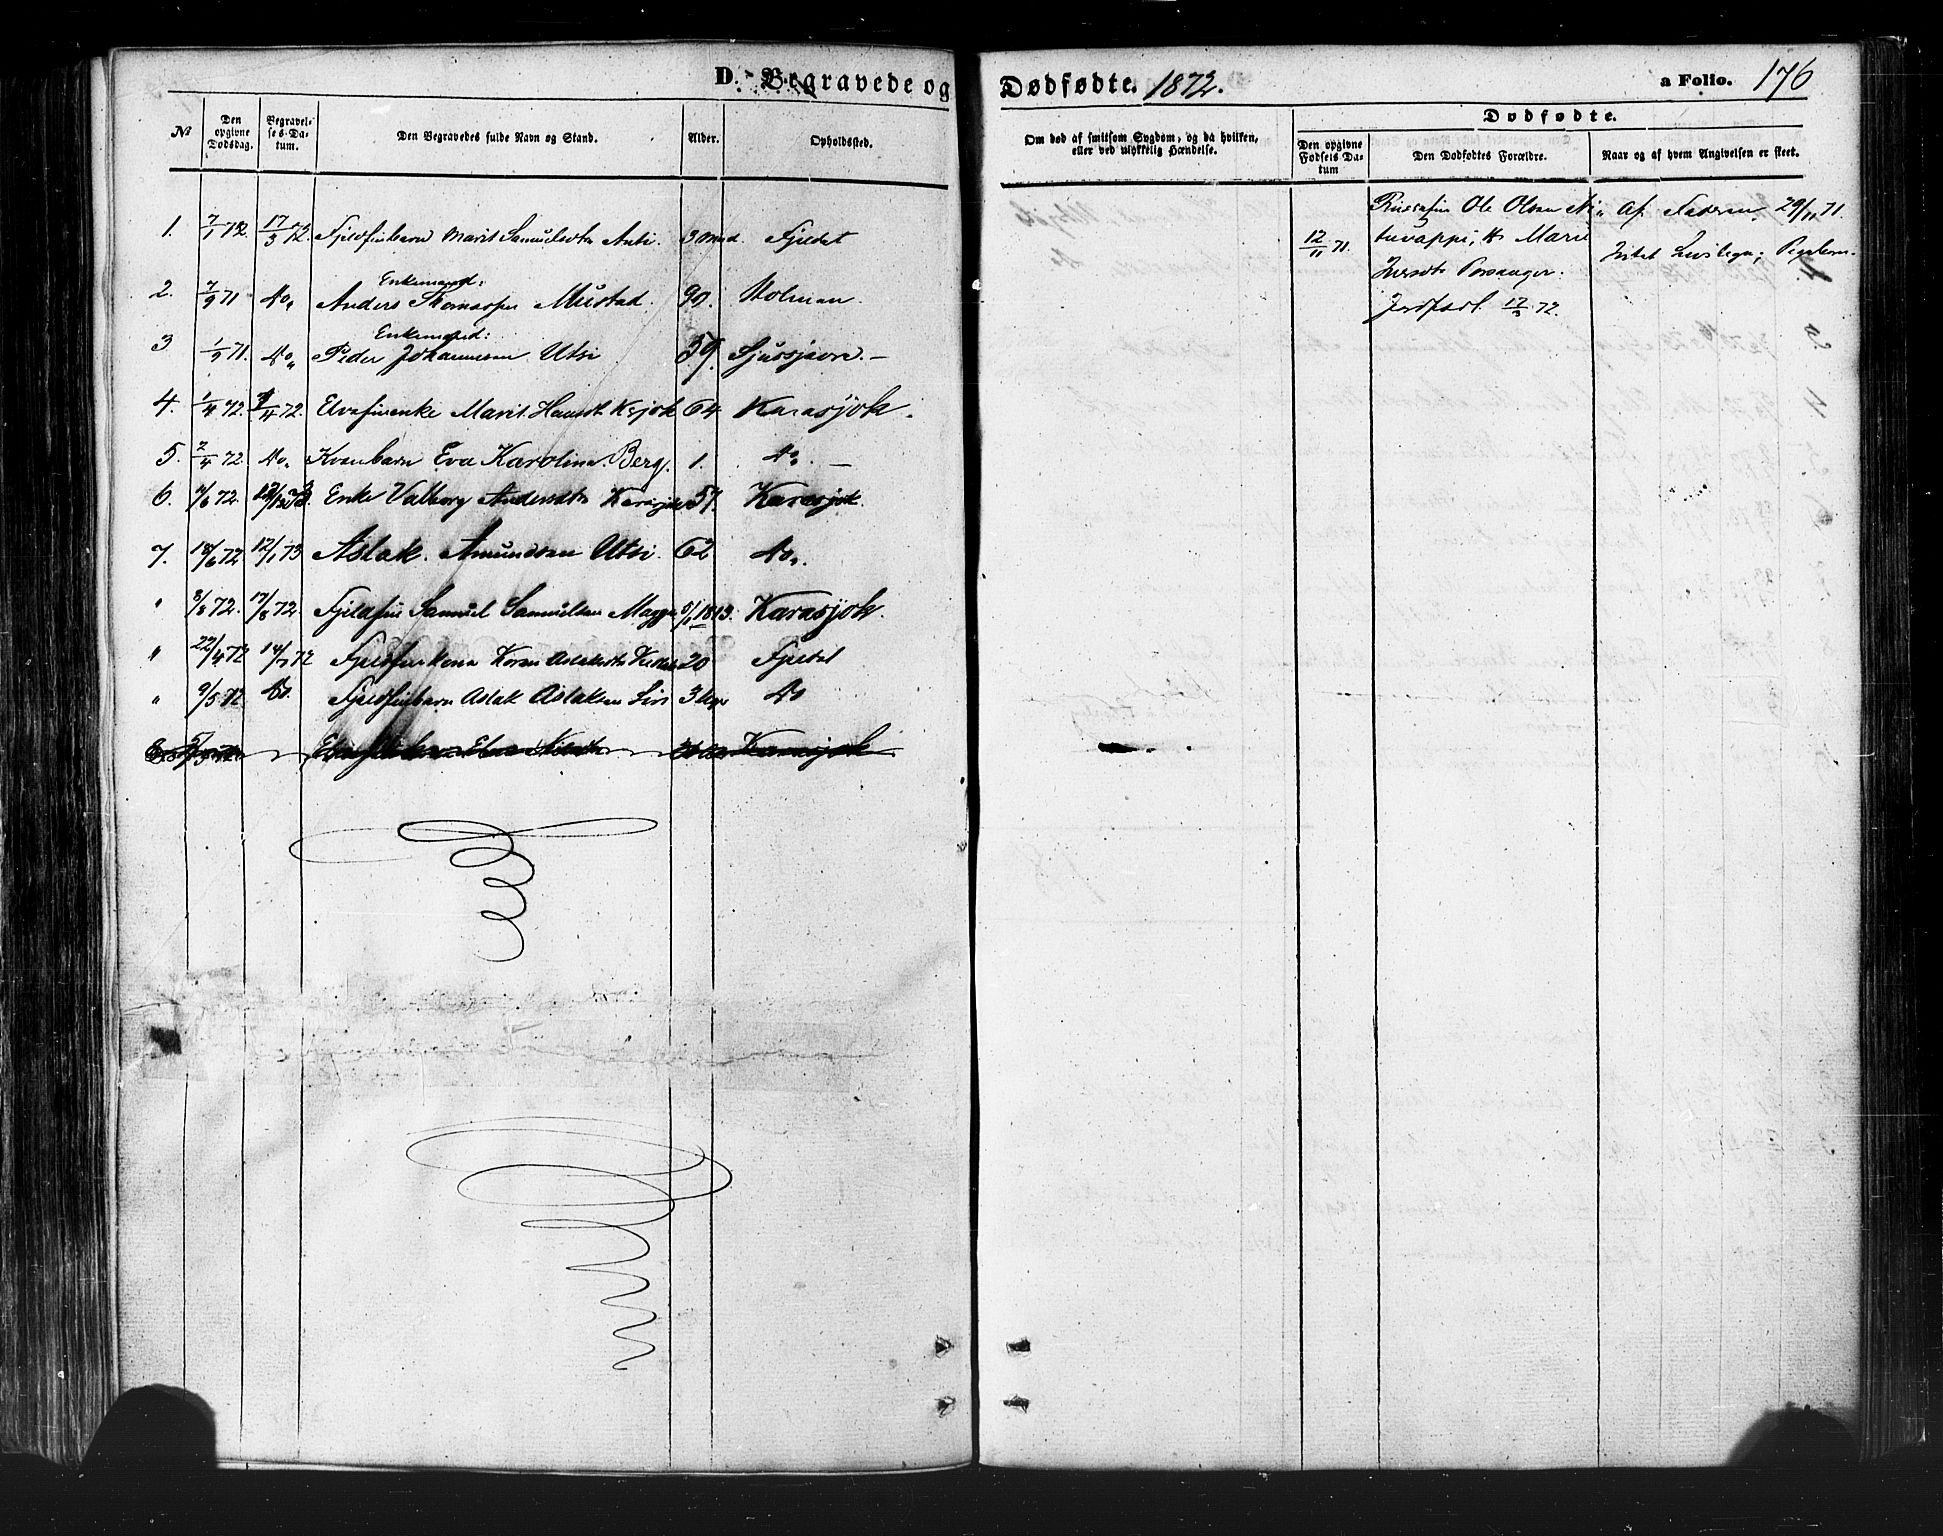 D. Begravede og Dødfødte. 1872. a Folio. 176
No
Den opgivne Dødsdag.
Begravelses-Datum.
Den Begravedes fulde Navn og Stand.
Alder.
Opholdssted.
Om død af smitsom Sygdom, og da hvilken, eller ved ulykkelig Hændelse.
Dødfødte.
Den opgivne Fødsels Datum
Den Dødfødtes Forældre.
Naar og af hvem Angivelsen er skeet.
1. 7/1 72. 17/3 72. Fjeldfinbarn Marit Samuelsdtr Anti. 3 Fjeldet
Enkemand:
2. 7/9 71 do, Anders Thomassen Mustad. 90. Holmen.
Enkemand:
3 1/9 71. do, Peder Johannesen Utsi 59. 
4. 1/4 72. 4/4 72. Elvefinenke Marit 64. Karasjok.
5. 2/4 72. do, Kvænbarn Eva Karolina Berg. 1. do. —
6. 4/6 72. Enke Valborg Andersdtr 57. Karasjok.
7. 18/6 72 12/1 73 Aslak Amundsen Utsi. 62 do.
" 3/8 72. 17/8 72. Fjeldfin Samuel Samuelsen Magga 5/1 1813. Karasjok.
" 22/4 72 14/7 72 Fjeldfinkone Karen Aslaksdtr 20 Fjeldet
" 9/5 72 do. Fjeldfinbarn Aslak Aslaksen Siri 3 do
Karasjok
12/11 71.
Ole Olsen
Marie
Persdtr Porsanger.
Jordfæst. 17/3 72.
Af Faderen, 29/11 71.